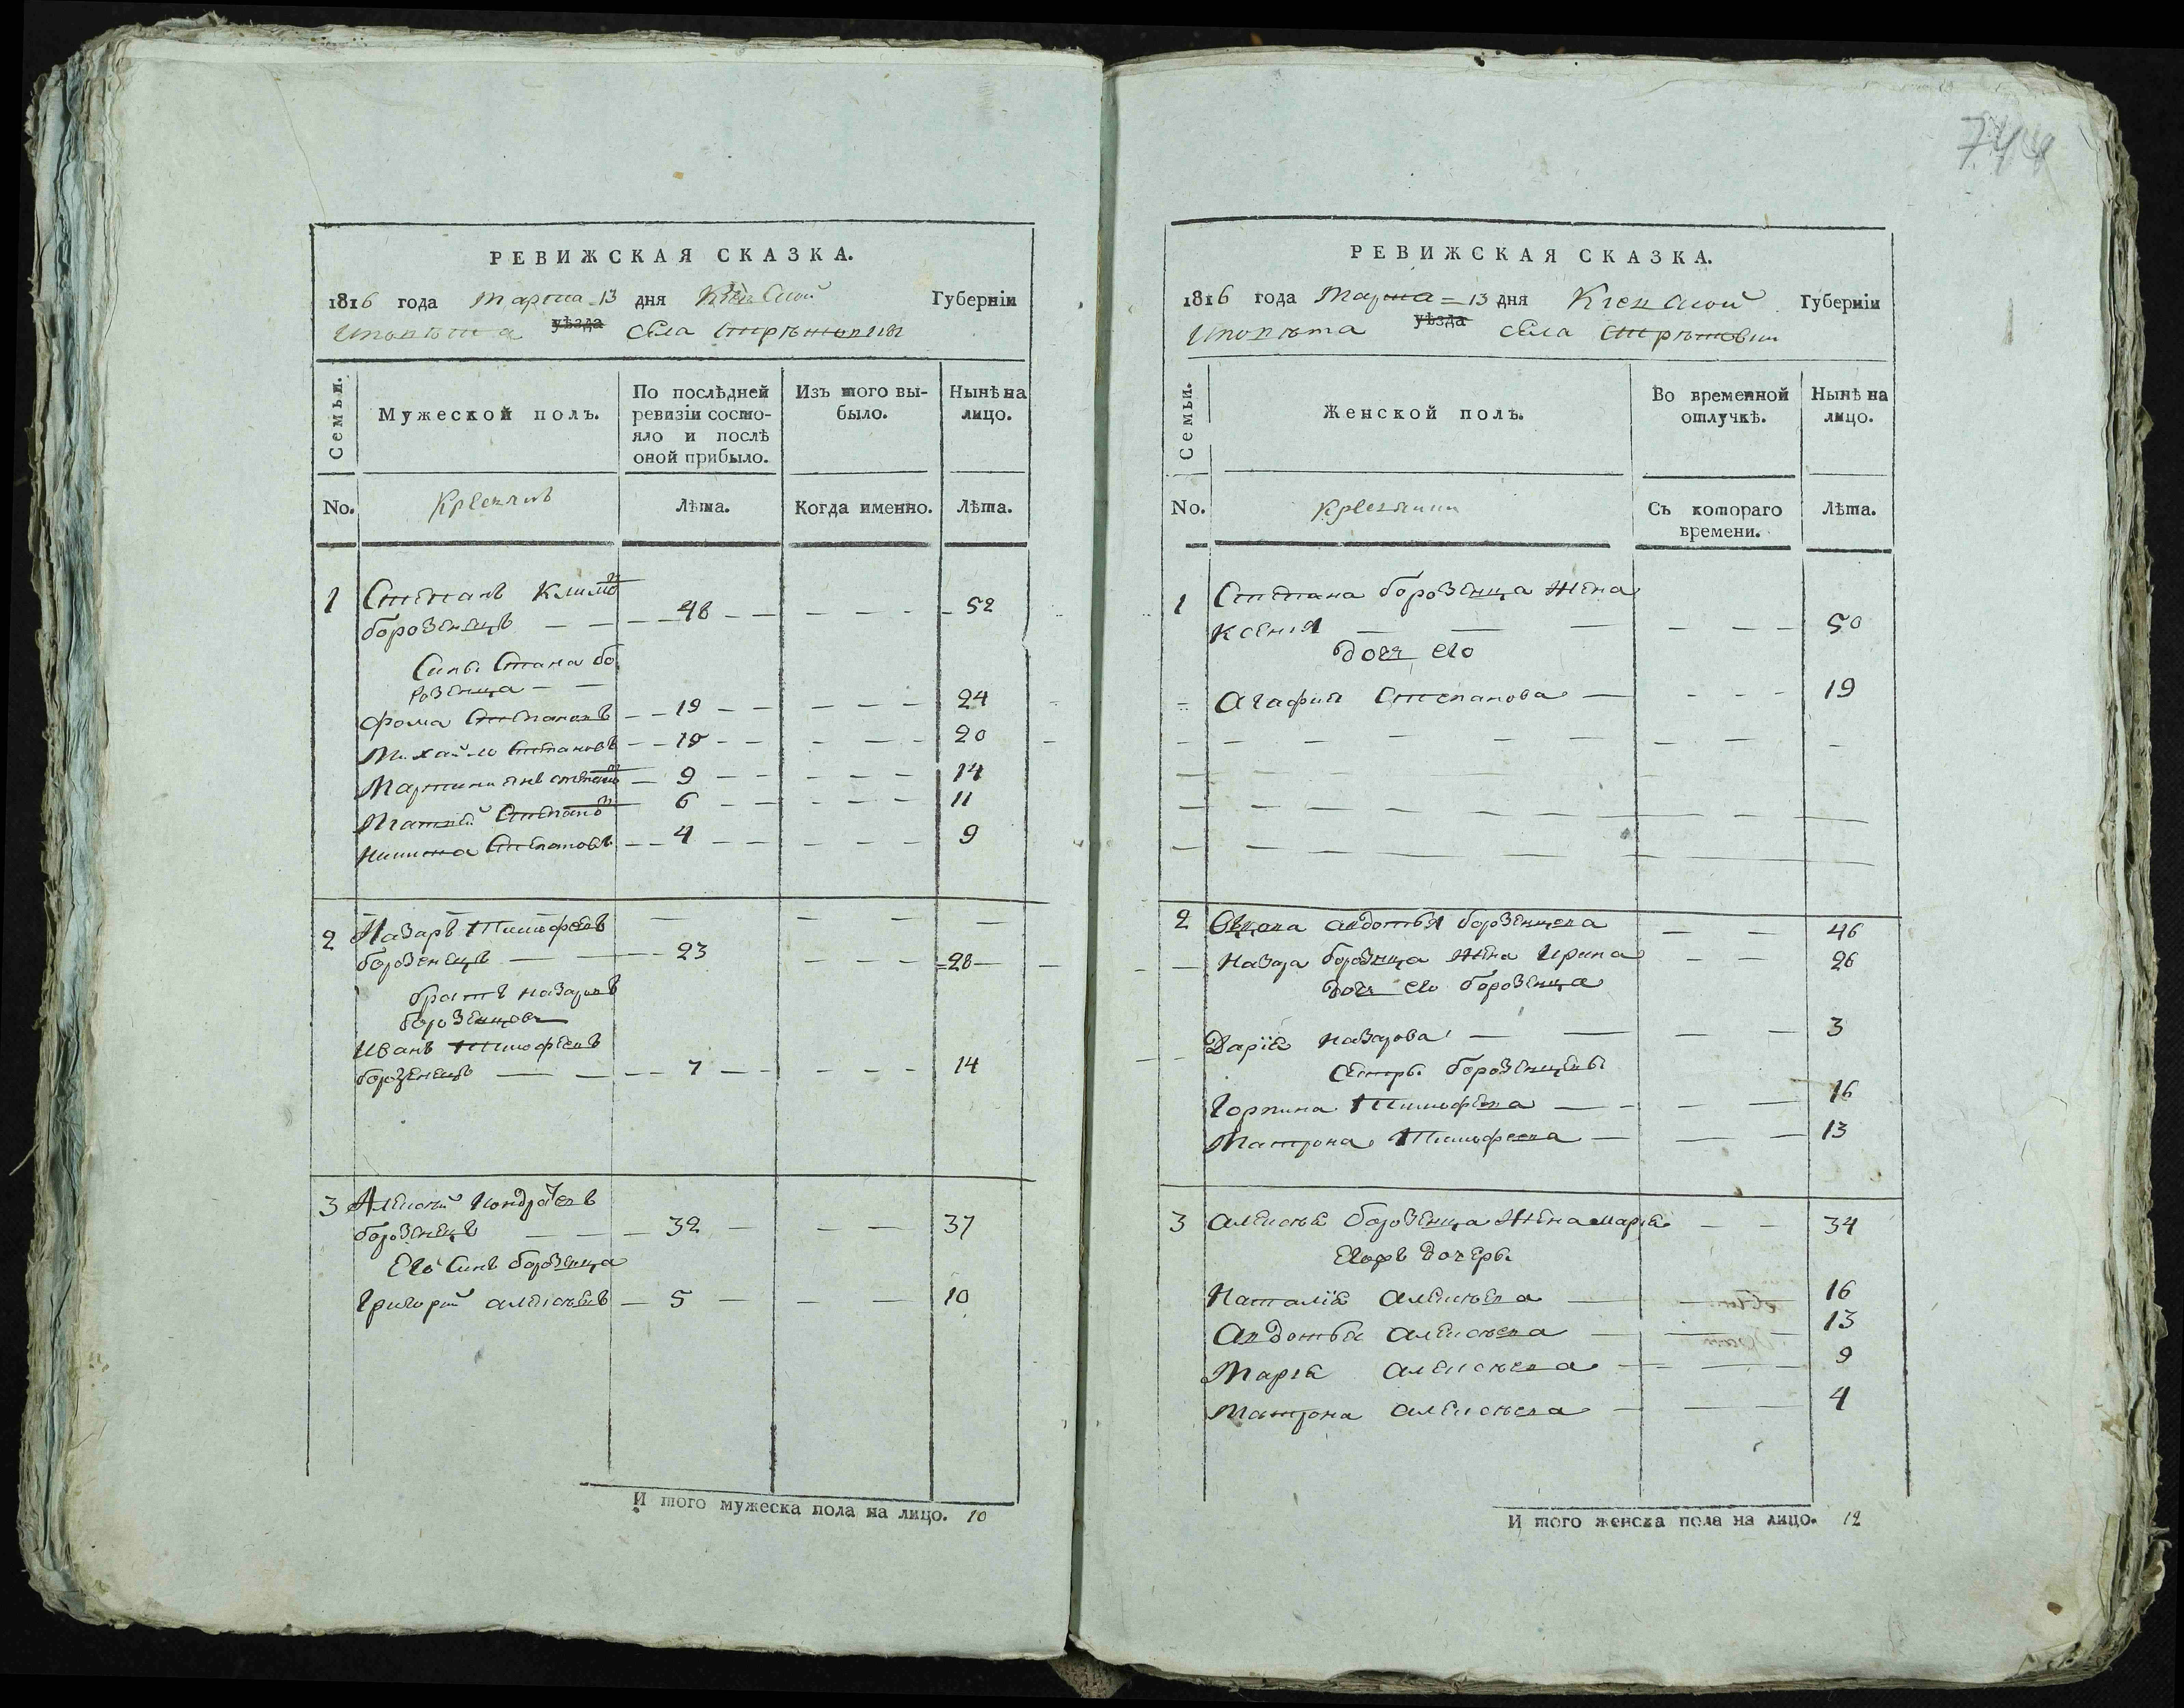 744
РЕВИЖСКАЯ СКАЗКА.
1816 года Марта 13 дня Кіевской Губерніи
уѣзда села
Семьи.
Мужеской полъ.
По послѣдней ревизіи состояло и послѣ оной прибыло.
Изъ того выбыло.
Нынѣ на лицо.
No.
Лѣта.
Когда именно.
Лѣта.
1 Степанъ Климо
борозенецъ — — 48 — — 52
Сины Стпана бо
розенца
Фома Степановъ — 19 — — 24
Михайло Степановъ — — 20
Мартинианъ степано — 9 — — 14
Матвѣй Степано — 6 — — 11
Никита Степановъ — 4 — — 9
2 Назаръ Тимофеевъ
борозенецъ — — 23 — — 28
братъ назаровъ
борозенцовъ
Иванъ Тимофеевъ
борозенецъ — — 7 — — 14
3 Алексѣй Кондратевъ
борозенецъ — — 32 — — 37
Его Синъ борозенца
Григорий алексѣевъ — 5 — — 10
И того мужеска пола на лицо. 10
РЕВИЖСКАЯ СКАЗКА.
1816 года Марта = 13 дня Киевской Губерніи
уѣзда села
Семьи.
Женской полъ.
Во временной отлучкѣ.
Нынѣ на лицо.
No.
Съ котораго времени.
Лѣта.
1 Степана борозенца жена
Ксения — — — 50
дочь его
Агафия Степанова — 19
2 авдотья борозенцева — — 46
Назара борозенца жена Ирина — — 26
дочь его борозенца
Дария назарова — — 3
сестры борозенцевы
Горпина Тимофеева — — 16
Матрона Тимофеева — — 13
3 алексѣя борозенца жена мария — — 34
дочеры
Наталия алексѣева — 16
Авдотья алексѣева — 13
Мария алексѣева — 9
Матрона алексѣева — 4
И того женска пола на лицо. 12